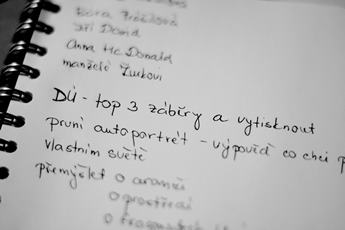 Jiří David
Anna Mc Donald
manželé Žůrkovi
DÚ - top 3 záběry a vytisknout
první autoportrét - výpověď co chci
vlastním světě
přemýšlet o aranži
o prostředí
o